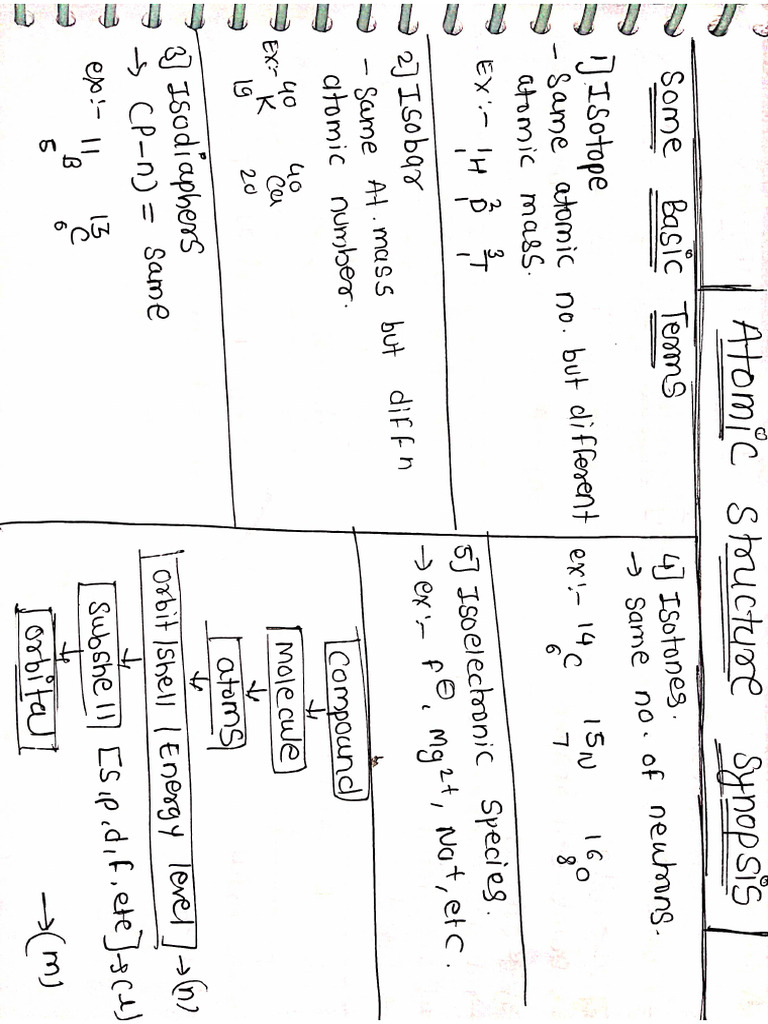 Atomic Structure Synopsis
Some Basic Terms
1] Isotope
- Same atomic no. but different
atomic mass.
Ex:- ¹₁H ²₁D ³₁T
2] Isobar
- Same At. mass but diffn
atomic number.
Ex:- ⁴⁰₁₉K ⁴⁰₂₀Ca
3] Isodiaphers
→ (P-n) = same
ex:- ¹¹₅B ¹³₆C
4] Isotones.
→ Same no. of neutrons.
ex:- ¹⁴₆C ¹⁵₇N ¹⁶₈O
5] Isoelectronic Species.
→ ex:- F⊖, Mg²⁺, Na⁺, etc.
Compound
↓
Molecule
↓
atoms
↓
orbit/shell/Energy level →(n)
↓
Subshell [s,p,d,f,etc] →(l)
↓
Orbital →(m)